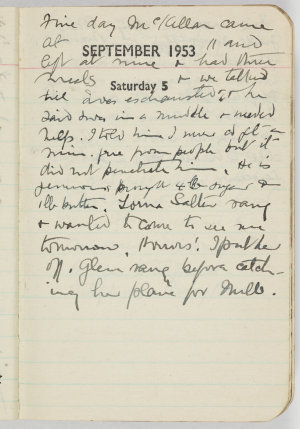 Fine day McKellar came
at 11 and
SEPTEMBER 1953
left at nine & had three
Saturday 5
meals & we talked
till I was exhausted, & he
said I was in a muddle & needed
help. I told him I need a
free from people but it
did not penetrate him. He is
generous brought 4 lb sugar &
1 lb butter. Lorna Salter rang
& wanted to come to see me
tomorrow, Horrors! I put her
off. Glen rang before catch-
ing her plane for Melb.